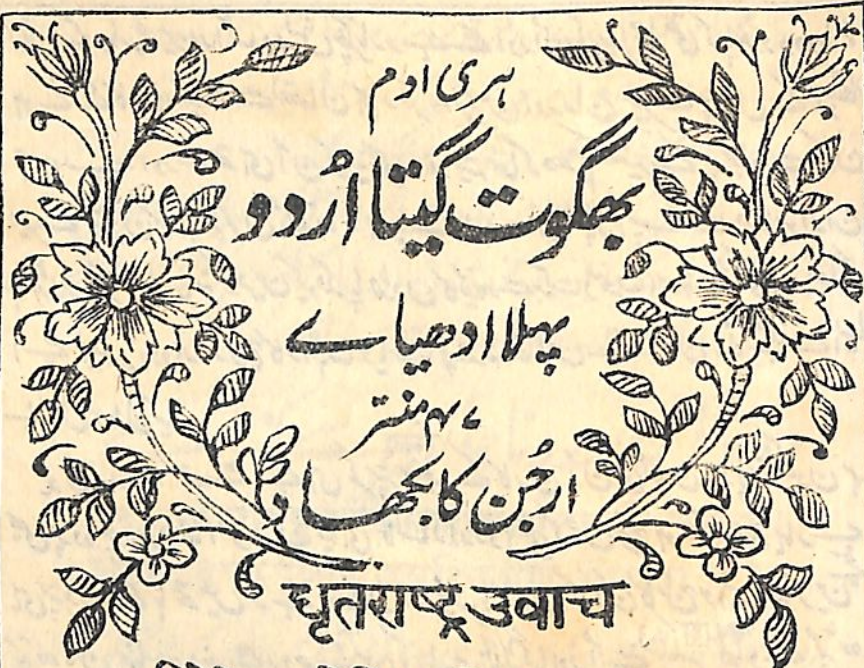 ہری اوم
بھگوت گیتا اُردو
پہلا ادھیاے
۴۷ منتر
ارجُن کا بکھاد
धृतराष्ट्र उवाच